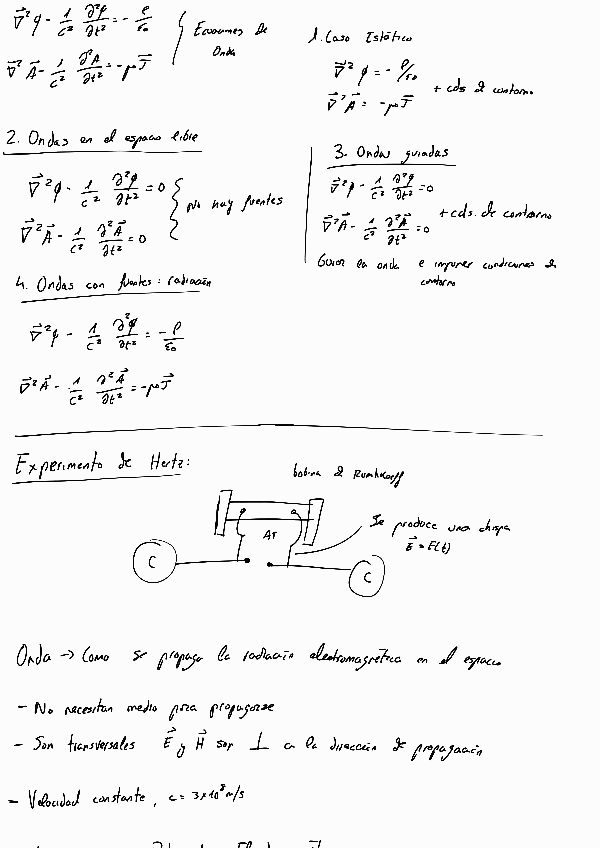 ∇⃗²φ - 1/c² ∂²φ/∂t² = - ρ/ε₀
∇⃗²A⃗ - 1/c² ∂²A⃗/∂t² = -μ₀ J⃗
Ecuaciones De
Onda
1. Caso Estático
∇⃗²φ = - ρ/ε₀
∇⃗²A⃗ = -μ₀ J⃗
+ cds de contorno
2. Ondas en el espacio libre
∇⃗²φ - 1/c² ∂²φ/∂t² = 0
∇⃗²A⃗ - 1/c² ∂²A⃗/∂t² = 0
No hay fuentes
3. Ondas guiadas
∇⃗²φ - 1/c² ∂²φ/∂t² = 0
∇⃗²A⃗ - 1/c² ∂²A⃗/∂t² = 0
+ cds. de contorno
Guiar la onda e imponer condiciones de
contorno
4. Ondas con fuentes: radiación
∇⃗²φ - 1/c² ∂²φ/∂t² = - ρ/ε₀
∇⃗²A⃗ - 1/c² ∂²A⃗/∂t² = -μ₀ J⃗
Experimento de Hertz:
bobina de Rumhkorff
AT
C
C
Se produce una chispa
E⃗ = E(t)
Onda → Como se propaga la radiación electromagnética en el espacio
- No necesitan medio para propagarse
- Son transversales E⃗ y H⃗ son ⊥ a la dirección de propagación
- Velocidad constante, c = 3×10⁸ m/s